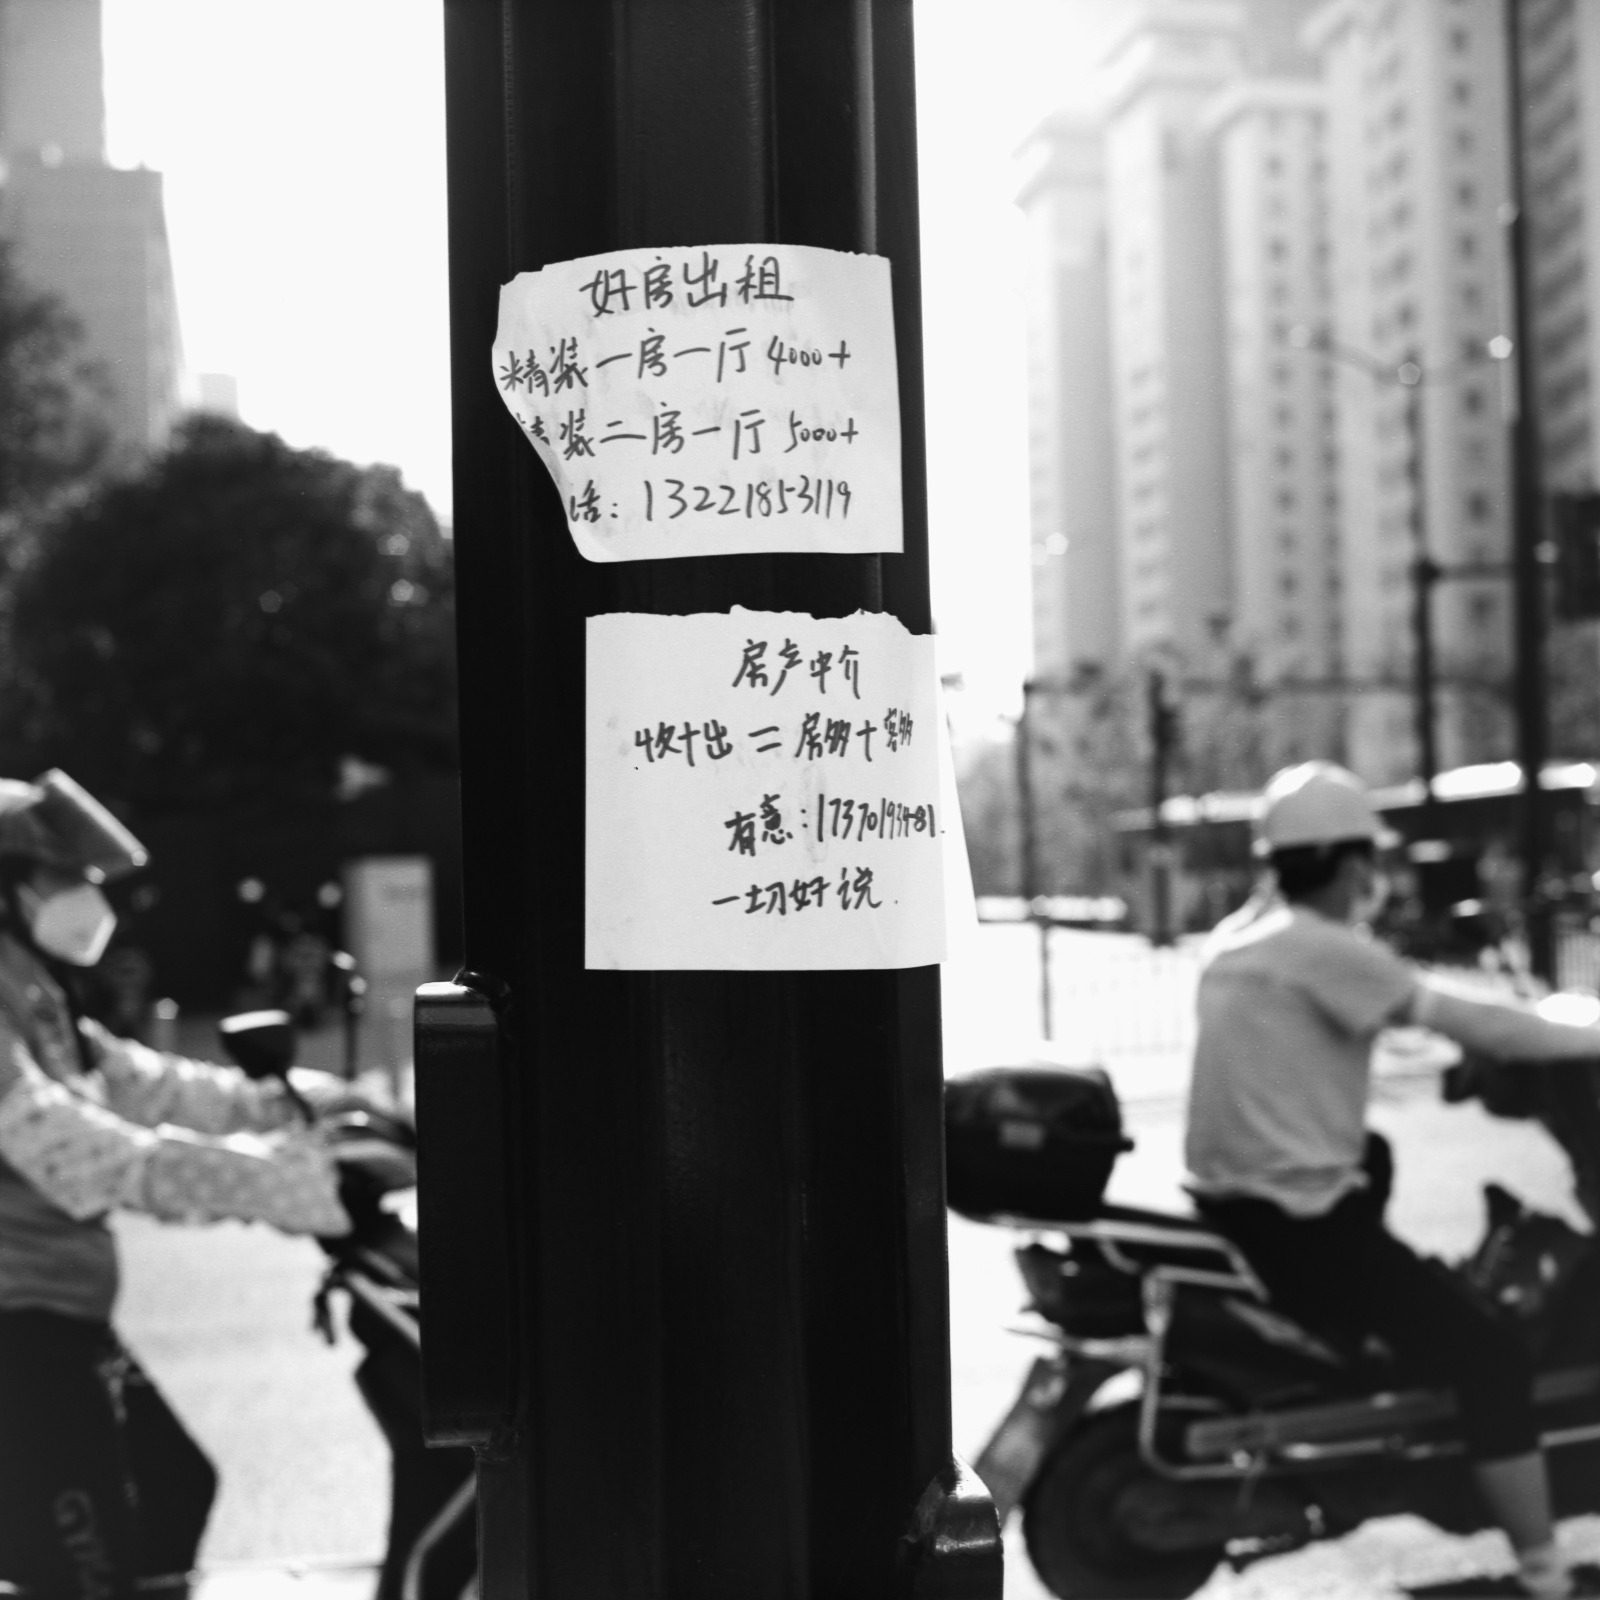 好房出租
精装一房一厅 4000+
精装二房一厅 5000+
话: 13221853119
房产中介
收+出 = 房多+客多
有意: 17370193481.
一切好说.